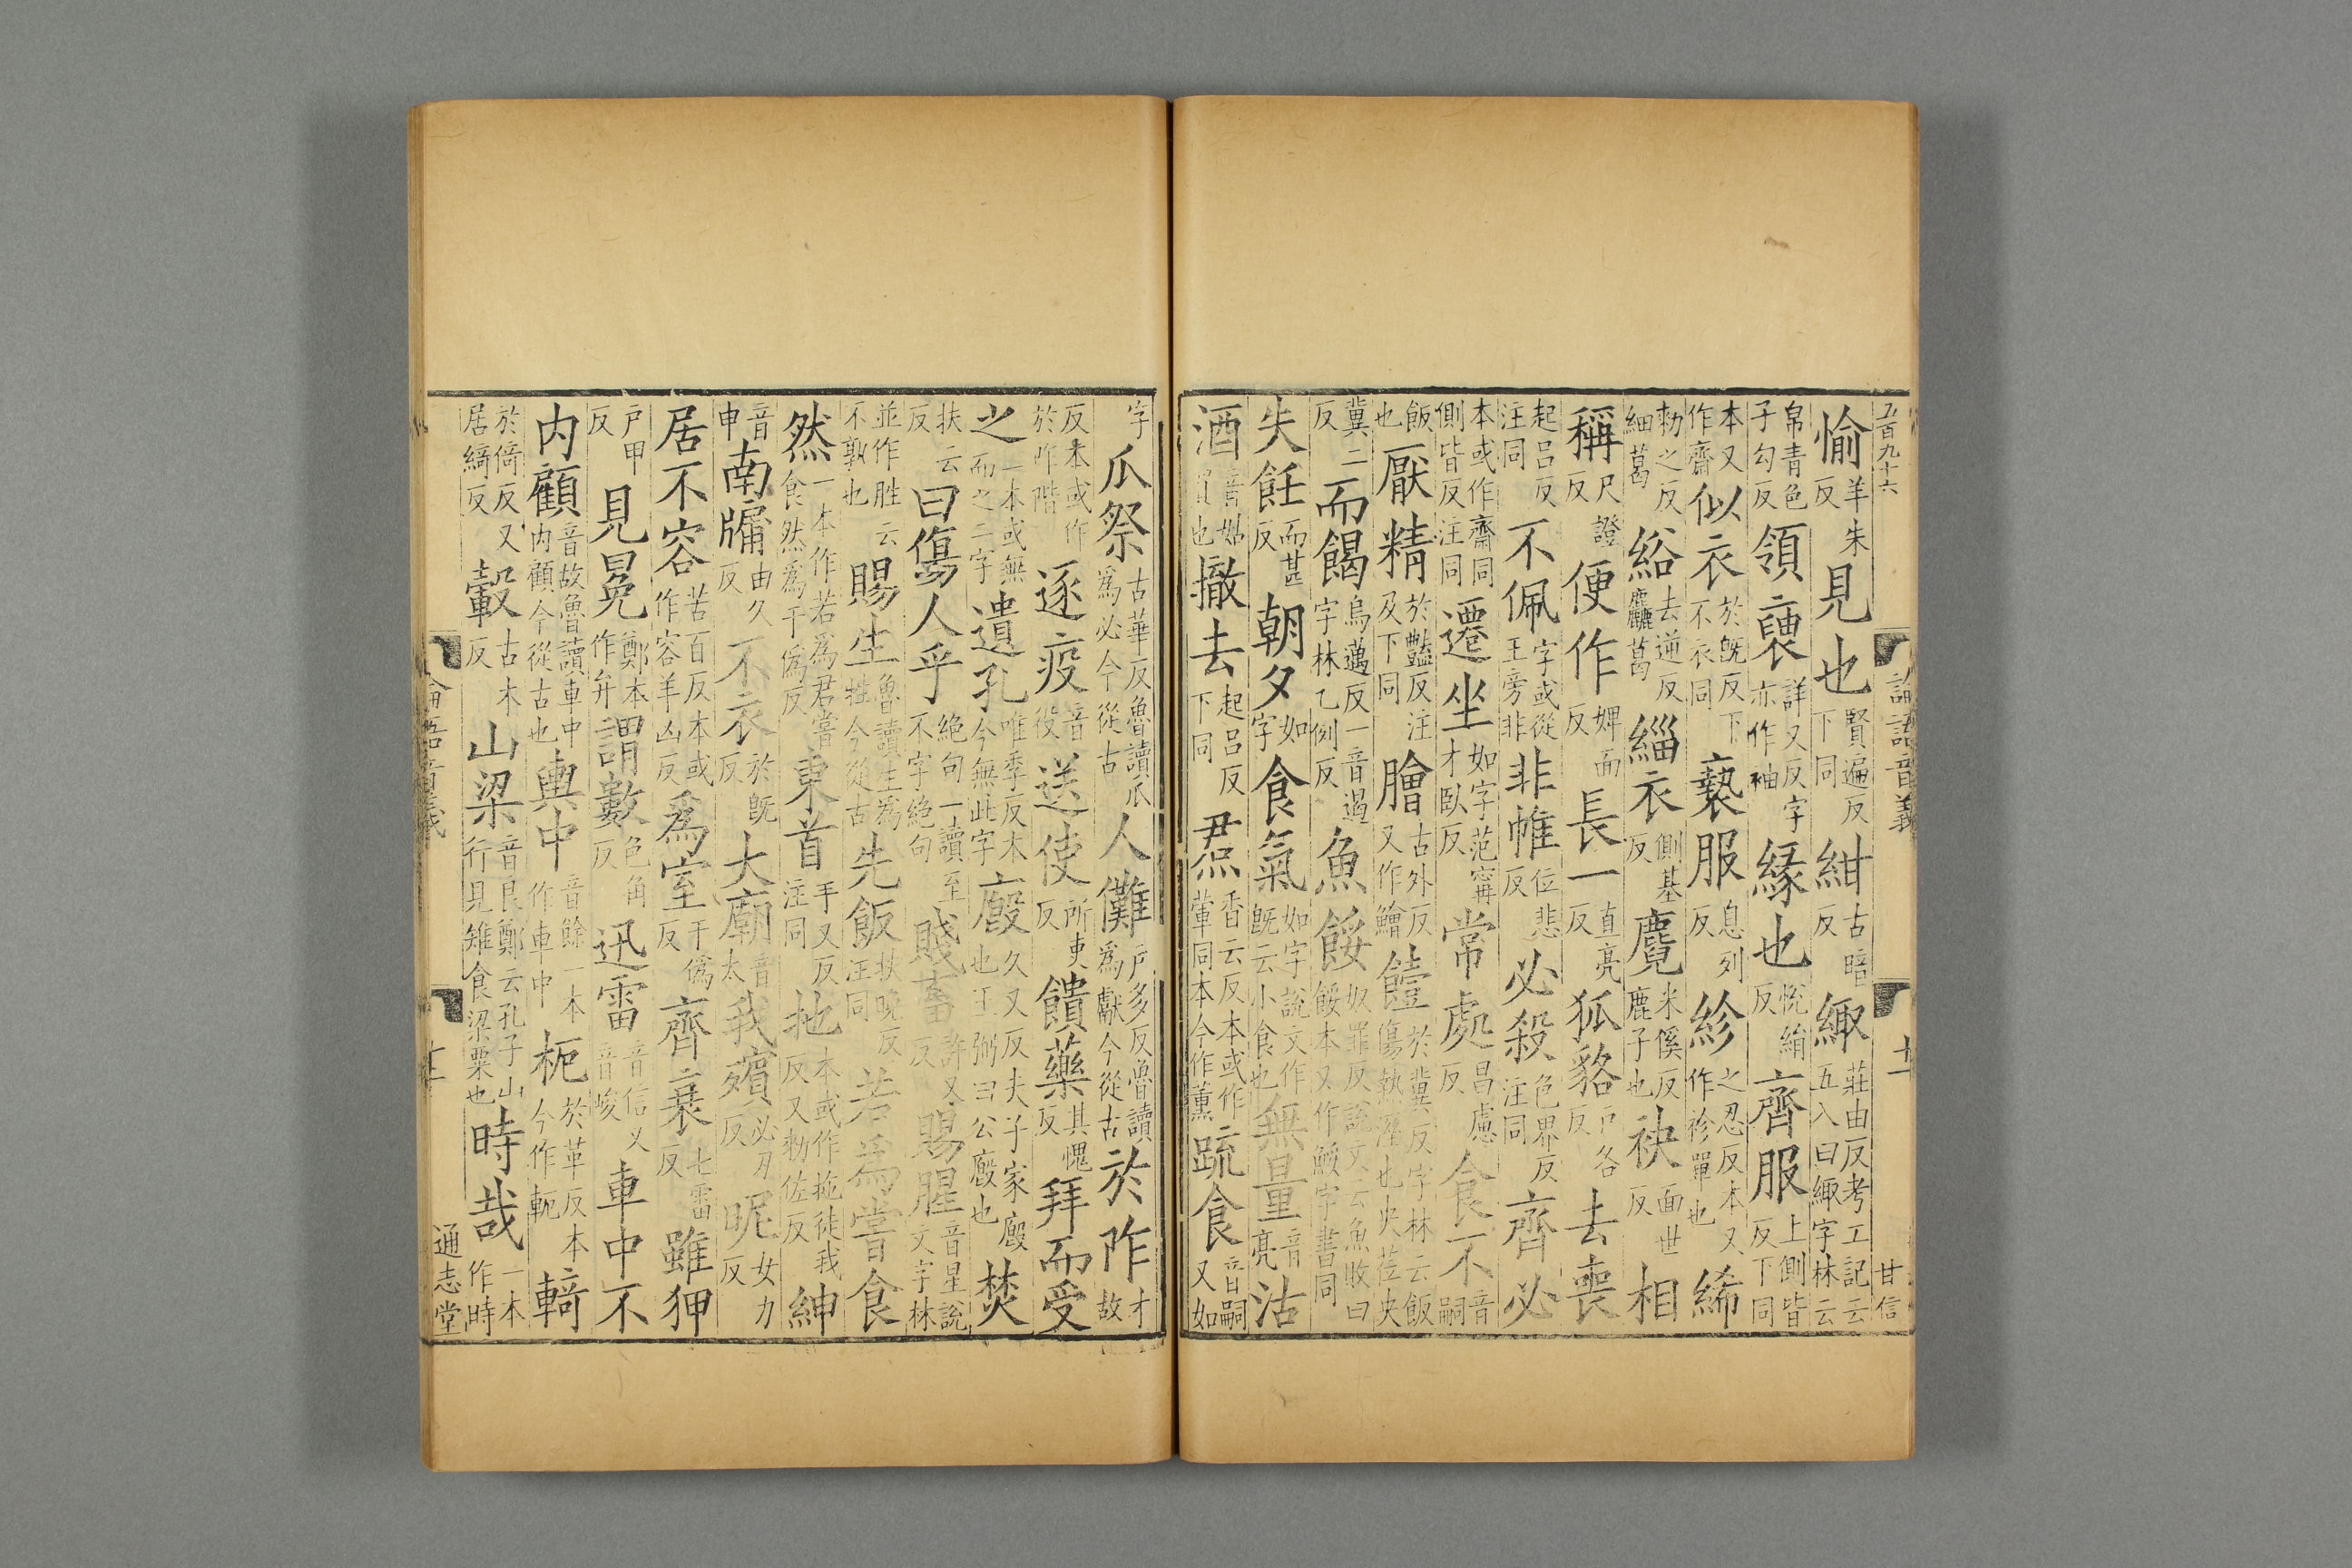 五百九十六
論語音義
十一
甘信
愉羊朱反見也賢遍反下同紺古暗反緅莊由反考工記云五入曰緅字林云
帛青色子勾反領褎詳又反字亦作袖緣也悅絹反齊服上側皆反下同
本又作齋似衣於旣反下不衣同褻服息列反紾之忍反本又作袗單也絺
勑之反細葛綌去逆反麤葛緇衣側基反麑米傒反鹿子也袂面世反相
稱尺證反便作婢面反長一直亮反狐貉戶各反去喪
起呂反注同不佩字或從王旁非非帷位悲反必殺色界反注同齊必
本或作齋同側皆反注同遷坐如字范甯才臥反常處昌慮反食不音嗣
飯也厭精於豔反注及下同膾古外反又作鱠饐於冀反字林云飯傷熱濕也央莅央
冀二反而餲烏邁反一音遏字林乙例反魚餒奴罪反說文云魚敗曰餒本又作鮾字書同
失飪而甚反朝夕如字食氣如字說文作旣云小食也無量音亮沽
酒音姑買也撤去起呂反下同焄香云反本或作葷同本今作薰疏食音嗣又如
字瓜祭古華反魯讀瓜爲必今從古人儺戶多反魯讀爲獻今從古於阼才故
反本或作於阼階逐疫音役送使所吏反饋藥其愧反拜而受
之一本或無而之二字遺孔唯季反本今無此字廏久又反夫子家廏也王弼曰公廏也焚
扶云反曰傷人乎絕句一讀至不字絕句賤畜許又反賜腥音星說文字林
並作胜云不孰也賜生魯讀生爲牲今從古先飯扶晚反注同若爲嘗食
然一本作若爲君嘗食然爲于僞反東首手又反注同扡本或作拖徒我反又勑佐反紳
音申南牖由久反不衣於旣反大廟音太我殯必刃反昵女力反
居不容苦百反本或作容羊凶反爲室于僞反齊衰七雷反雖狎
戶甲反見冕鄭本作弁謂數色角反迅雷音信又音峻車中不
內顧音故魯讀車中內顧今從古也輿中音餘一本作車中枙於革反本今作軛輢
於倚反又居綺反轂古木反山梁音良鄭云孔子山行見雉食梁粟也時哉一本作時
論語音義
通志堂